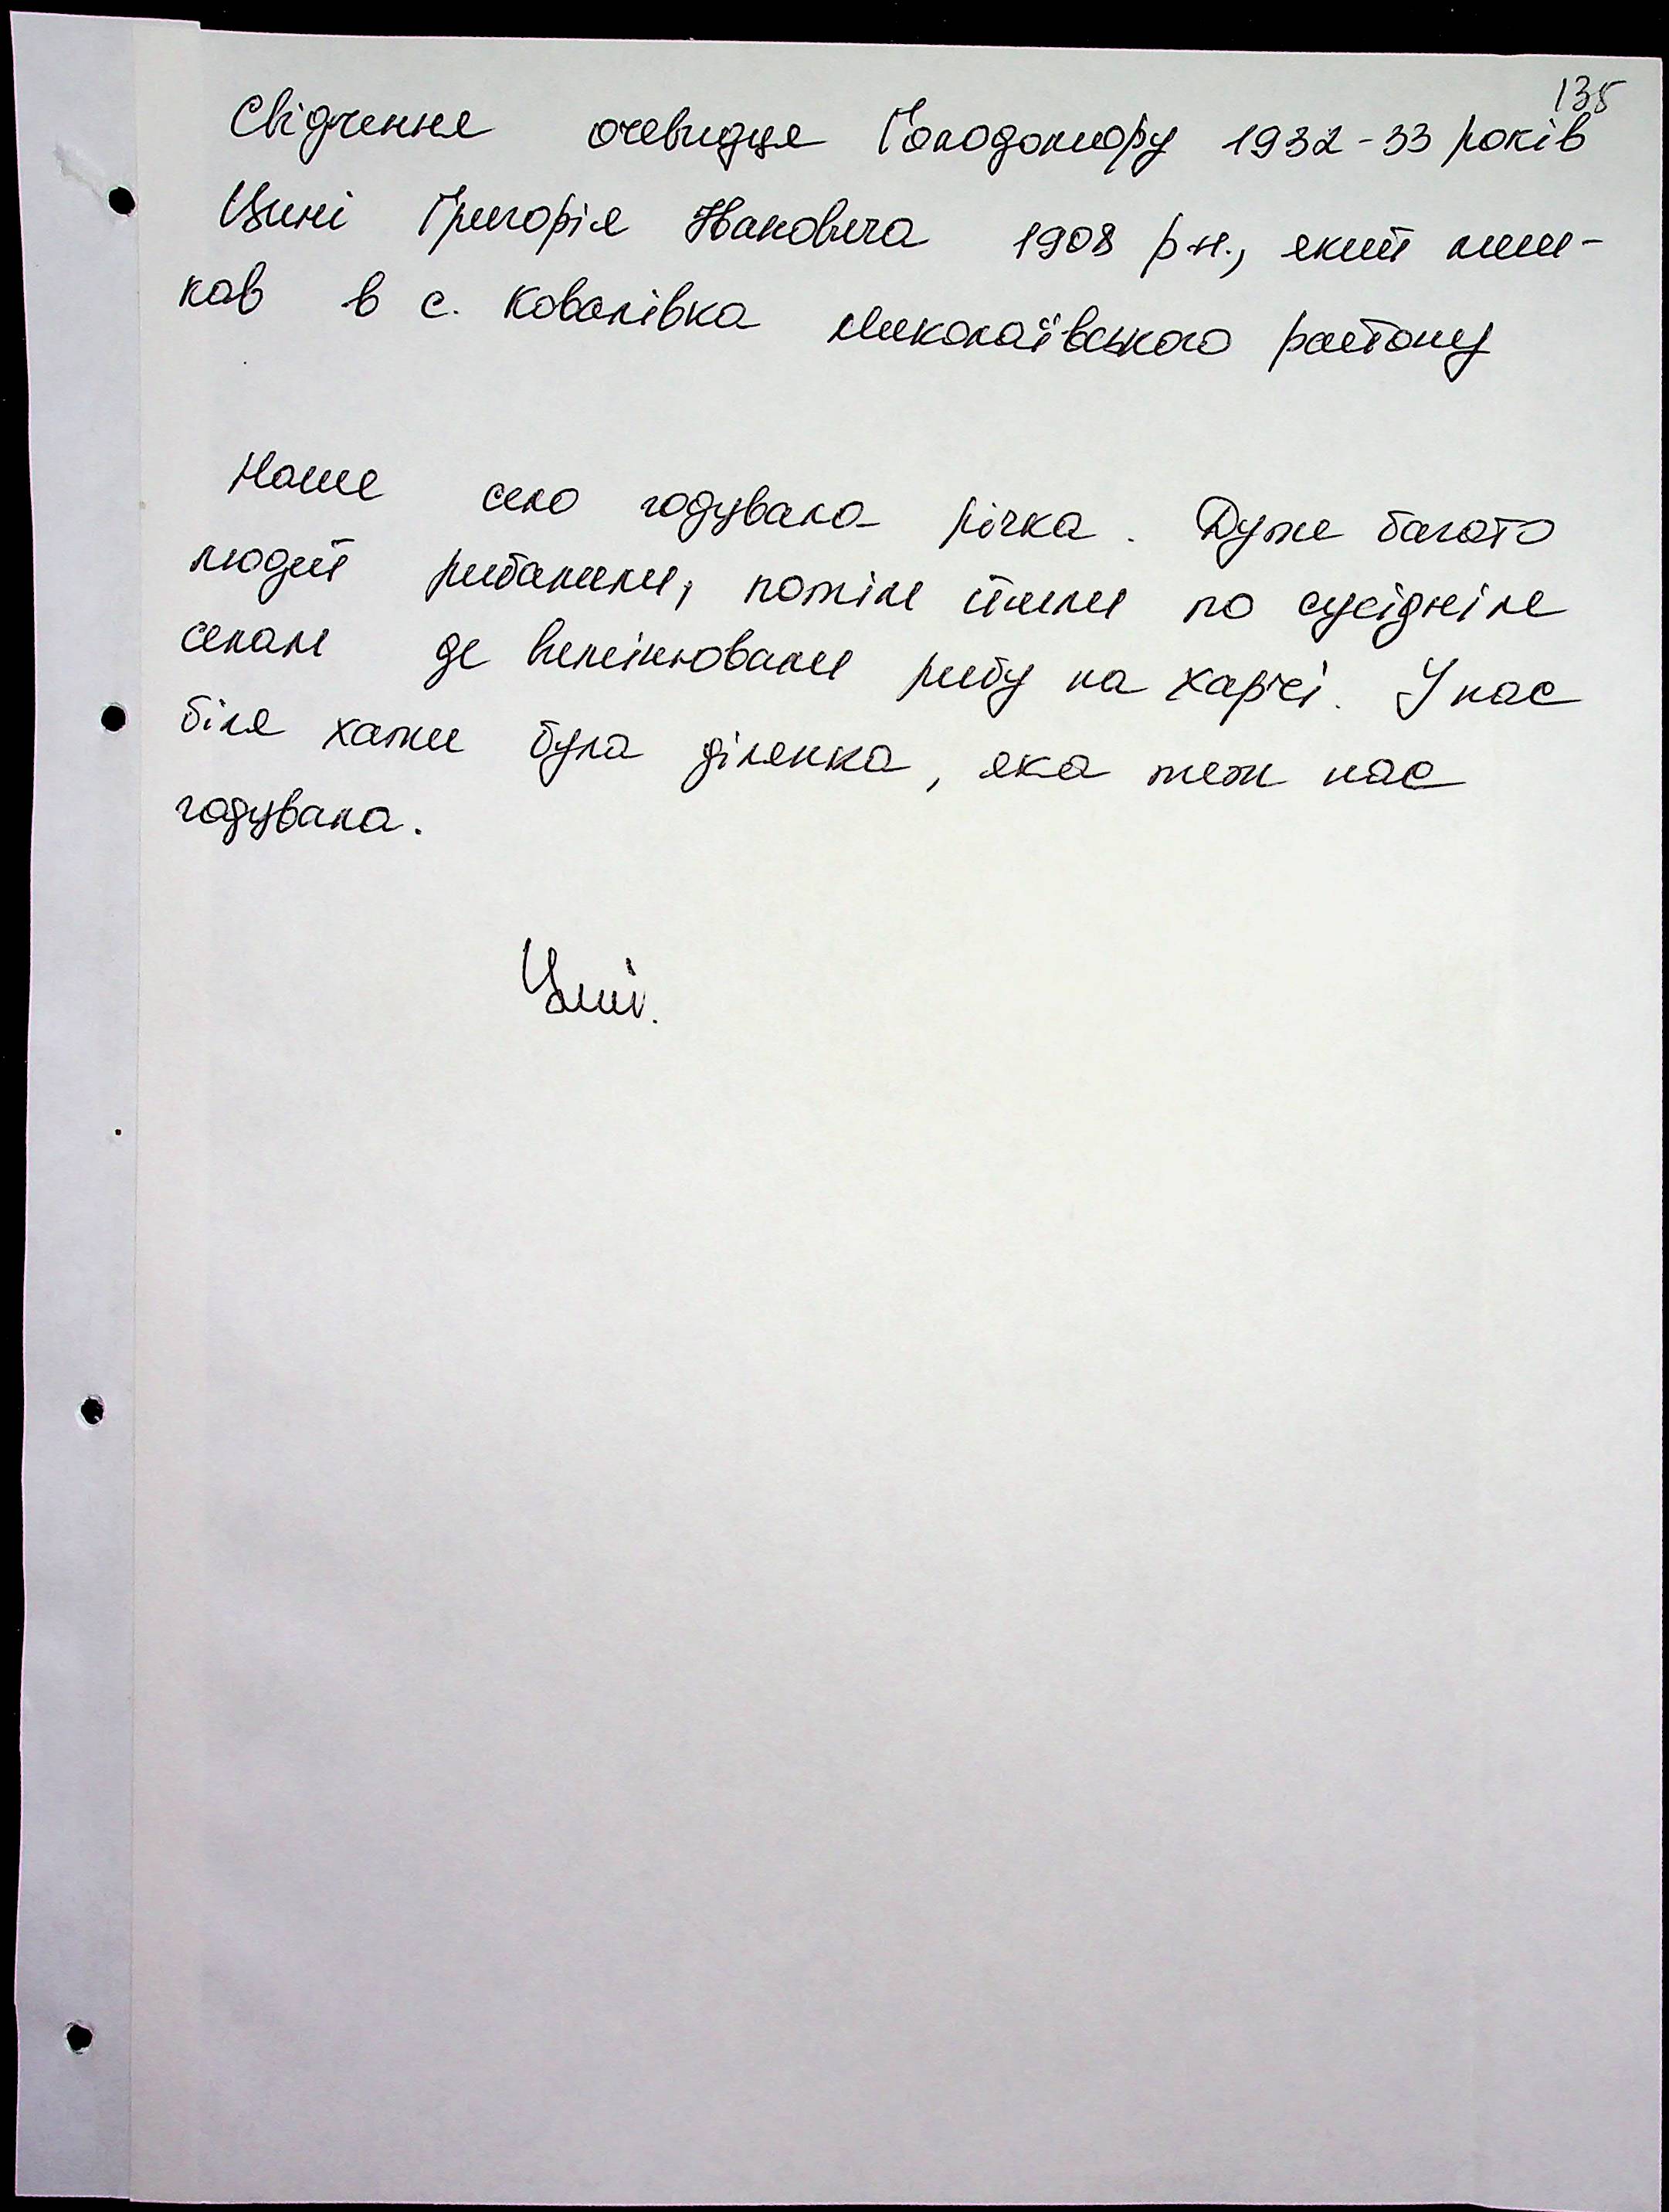 135
Свідчення очевидця Голодомору 1932-33 років
Цині Григорія Івановича 1908 р.н., який меш-
кав в с. Ковалівка Миколаївського району
Наше село годувала річка. Дуже багато
людей рибалили, потім йшли по сусіднім
селам де вимінювали рибу на харчі. У нас
біля хати була ділянка, яка теж нас
годувала.